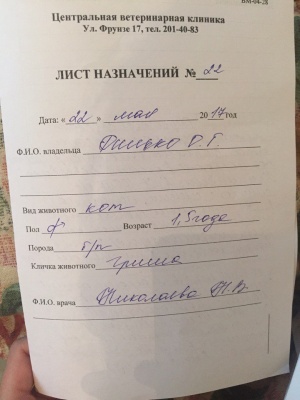 ВМ-04-28
Центральная ветеринарная клиника
Ул. Фрунзе 17, тел. 201-40-83
ЛИСТ НАЗНАЧЕНИЙ № 22
Дата: « 22 » мая 2017 год
Ф.И.О. владельца Филько О.Г.
Вид животного кот
Пол ♂ Возраст 1,5 года
Порода б/п
Кличка животного Гриша
Ф.И.О. врача Николаева Н.В